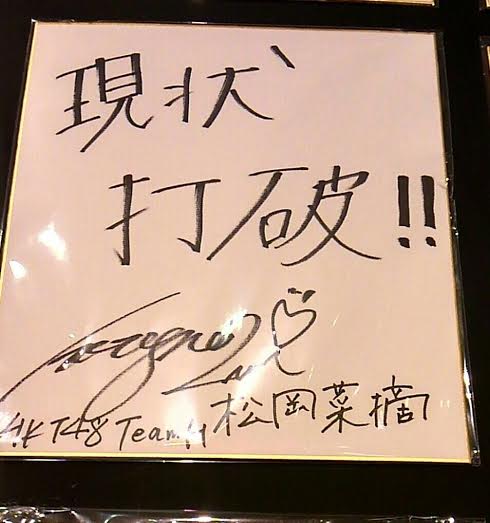 現状
打破!!
HKT48 TeamH 松岡菜摘